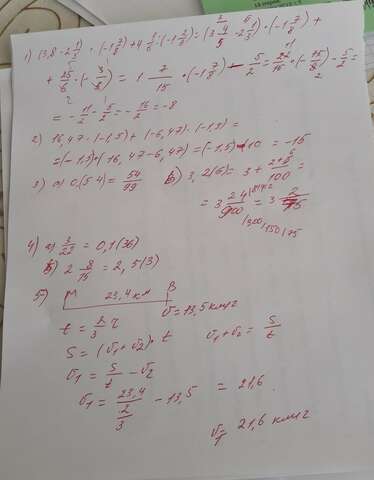 1) (3,8 - 2 1/3) · (-1 7/8) + 4 1/6 · (-1 2/3) = (3 4/5 - 2 1/3) · (-1 7/8) +
+ 25/6 · (-3/5) = 1 7/15 · (-1 7/8) - 5/2 = 22/15 · (-15/8) - 5/2 =
= - 11/2 - 5/2 = - 16/2 = -8
2) 16,47 · (-1,5) + (-6,47) · (-1,5) =
= (-1,5) · (16,47 - 6,47) = (-1,5) · 10 = -15
3) а) 0,(54) = 54/99
3,2(6) = 3 +
= 3 24/900 = 3 2/75
/300/150/75
4) а) 3/22 = 0,1(36)
б) 2 8/15 = 2,5(3)
5) М 23,4 км В
v = 13,5 км/ч
t = 2/3 ч
S = (v1 + v2) · t v1 + v2 = S/t
v1 = S/t - v2
v1 = 23,4 / 2/3 - 13,5 = 21,6
v1 = 21,6 км/ч